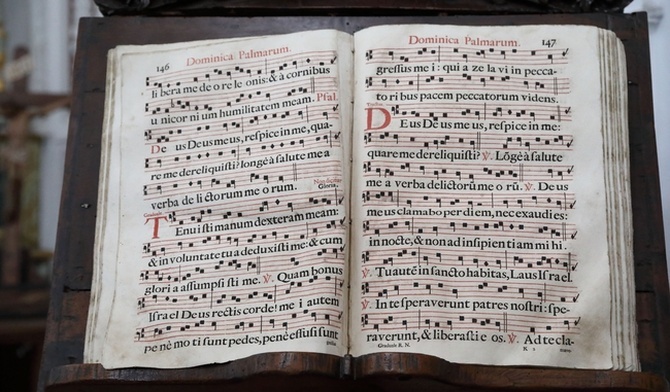 146
Dominica Palmarum.
li bera me de o re le onis: & à cornibus
u nicor ni um humilitatem meam. Psal.
De us Deus meus, respice in me, qua-
re me dereliquisti? longè à salute mea
verba de li ctorum me o rum.
Gloria.
Graduale
Tenui sti manum dexteram meam:
& in voluntate tua deduxi sti me: & cum
glori a assumpsi sti me. ℣. Quam bonus
Israel Deus rectis corde! me i autem
pe nè mo ti sunt pedes, penè effusi sunt
Dominica Palmarum.
147
gressus me i: qui a ze la vi in pecca-
to ri bus pacem peccatorum videns.
Tractus
DEus Deus meus, respice in me:
quare me dereliquisti? ℣. Lōgè à salute
me a verba delictorū me o rū. ℣. Deus
meus clamabo per diem, nec exaudi es:
in nocte, & non ad insipien ti am mi hi.
℣. Tu autē in sancto habitas, Laus Israel.
℣. In te speraverunt patres nostri: spe-
raverunt, & liberasti e os. ℣. Ad te cla-
Gradualis R. N.